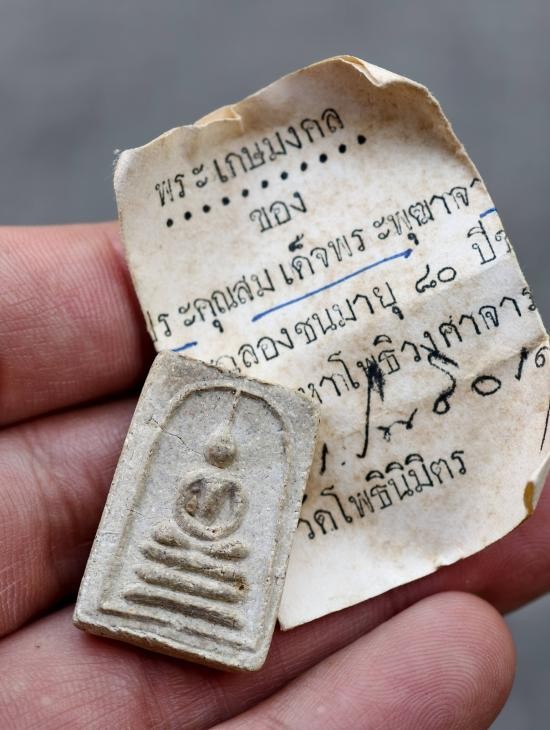 พระเกษมงคล
ของ
ประคุณสมเด็จพระพุฒาจา
ฉลองชนมายุ ๘๐ ปี
มหาโพธิวงศาจาร
วัดโพธินิมิตร